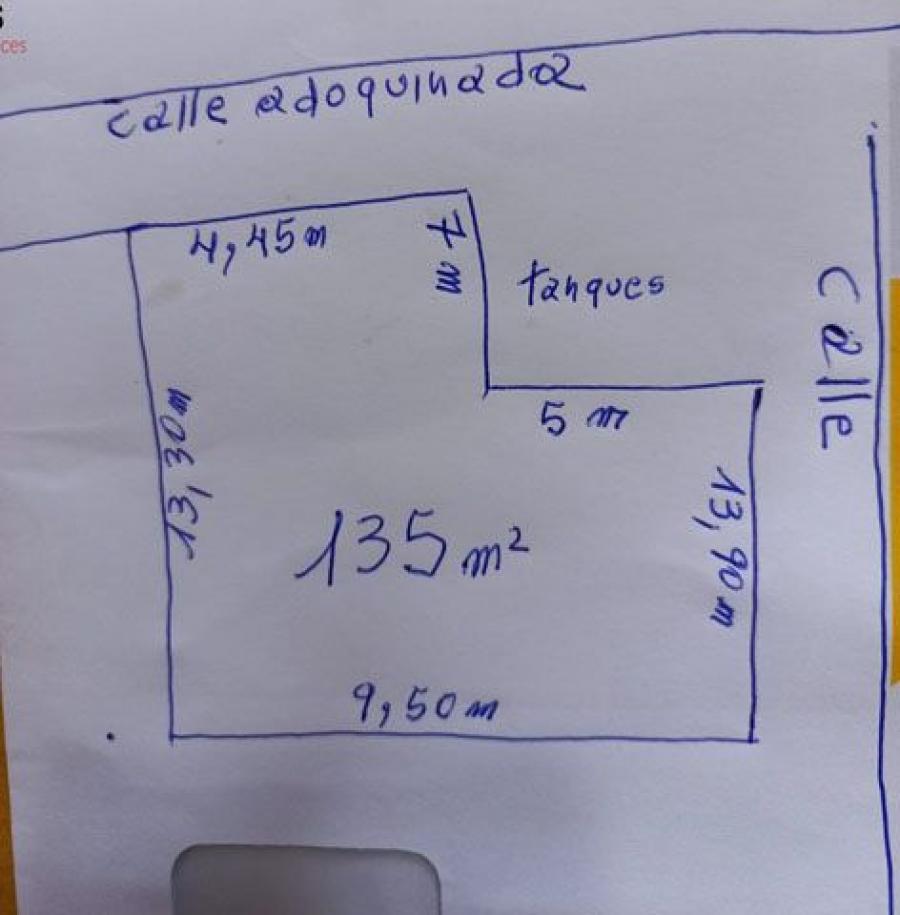 s
ces
calle adoquinada
4,45m
7m
tanques
calle
5 m
13,30m
13,90m
135m²
9,50m